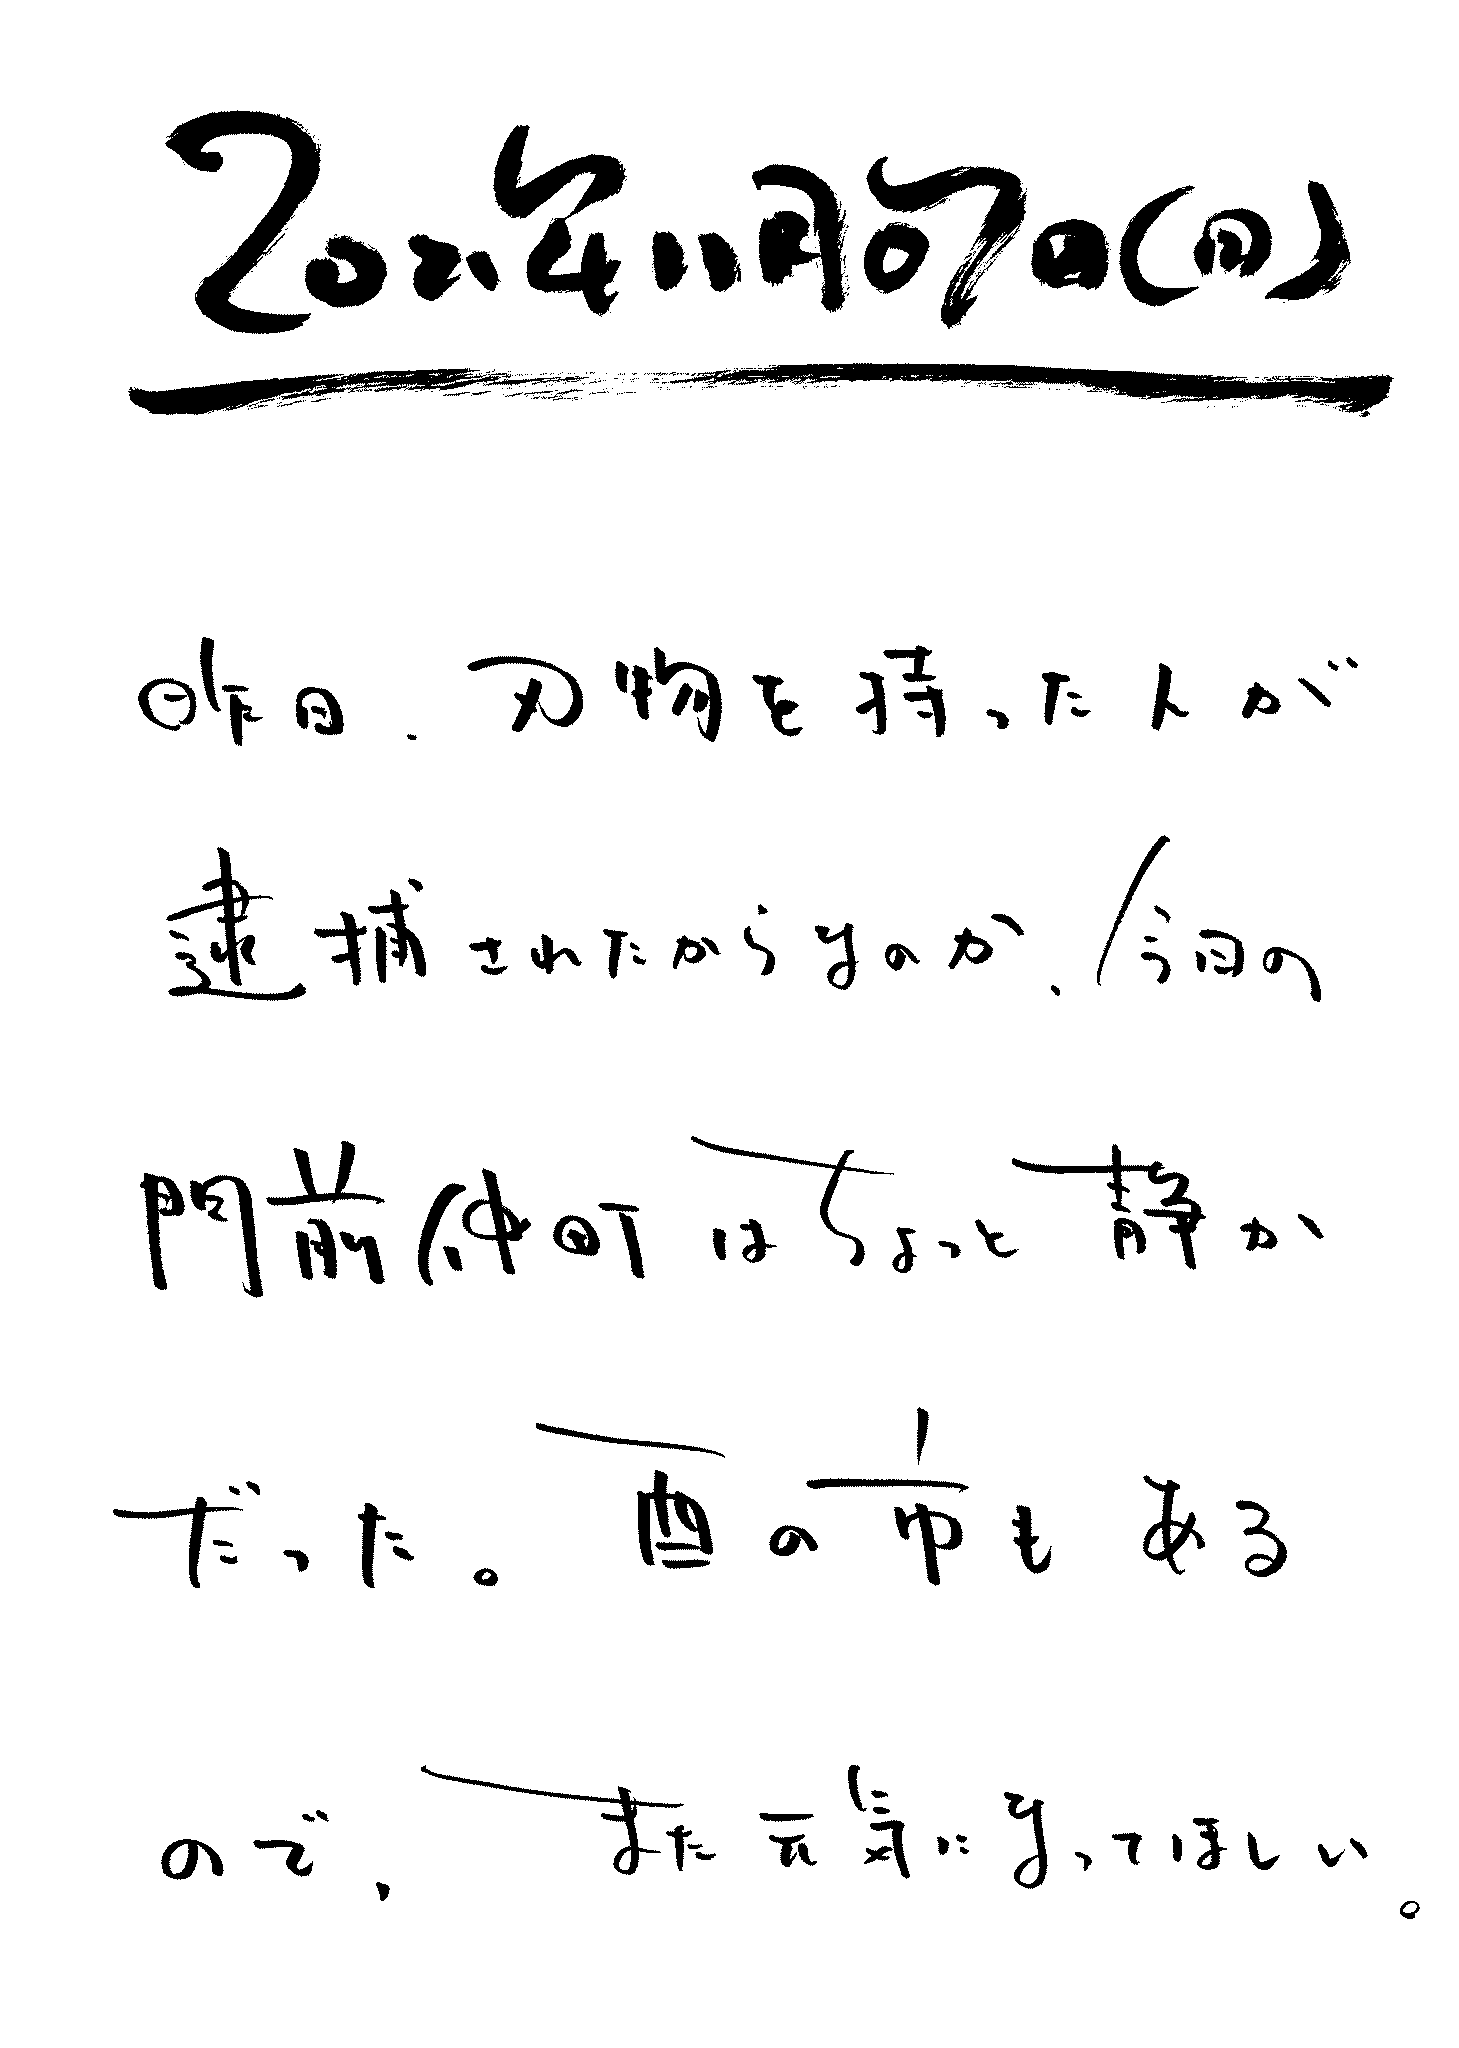 2021年11月07日(日)
昨日、刃物を持った人が
逮捕されたからなのか、今日の
門前仲町はちょっと静か
だった。酉の市もある
ので、また元気になってほしい。